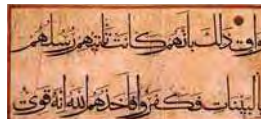 واق ذلك بأنهم كانت تأتيهم رسلهم
بالبينات فكفروا فأخذهم الله إنه قوى